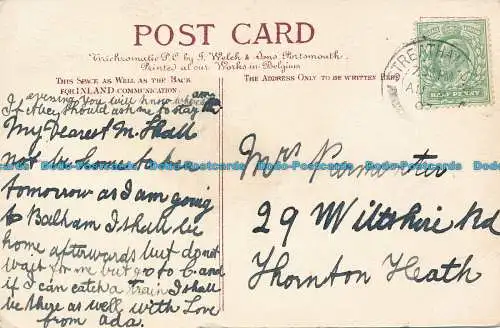 POST CARD
Trichromatic P.C. by J. Welch & Sons Portsmouth.
Printed at our Works in Belgium
THIS SPACE AS WELL AS THE BACK
FOR INLAND COMMUNICATION
THE ADDRESS ONLY TO BE WRITTEN HERE
STREATHAM
HALFPENNY
evening you will know where I am
If Alley should ask me to stay the
My Dearest M. Shall
not be home to tea
tomorrow as I am going
to Balham I shall be
home afterwards but do not
wait for me but go to C. and
if I can catch a train I shall
be there as well with Love
from Ada.
Mrs Parmenter
29 Wiltshire Rd
Thornton Heath
Dodo-Postcards